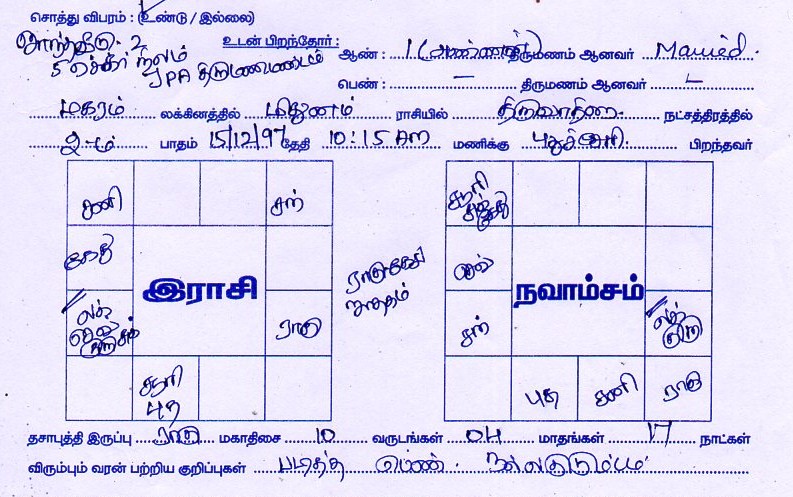 சொத்து விபரம் : (உண்டு / இல்லை)
சொந்தவீடு - 2
உடன் பிறந்தோர் : ஆண் : 1 (அண்ணன்) திருமணம் ஆனவர் Married.
5 ஏக்கர் நிலம்
பெண் : – திருமணம் ஆனவர் –
மகரம் லக்கினத்தில் மிதுனம் ராசியில் திருவாதிரை நட்சத்திரத்தில்
2-ம் பாதம் 15/12/97 தேதி 10:15 Am மணிக்கு புதுச்சேரி. பிறந்தவர்
சனி சந்
கேது
இராசி
லக்
ராகு
சூரி
புத
ராகு கேது
சூரி
நவாம்சம்
சந்
லக்
குரு
புத சனி ராகு
தசாபுத்தி இருப்பு ராகு மகாதிசை 10 வருடங்கள் 04 மாதங்கள் 17 நாட்கள்
விரும்பும் வரன் பற்றிய குறிப்புகள் படித்த பெண். நல்ல குடும்பம்